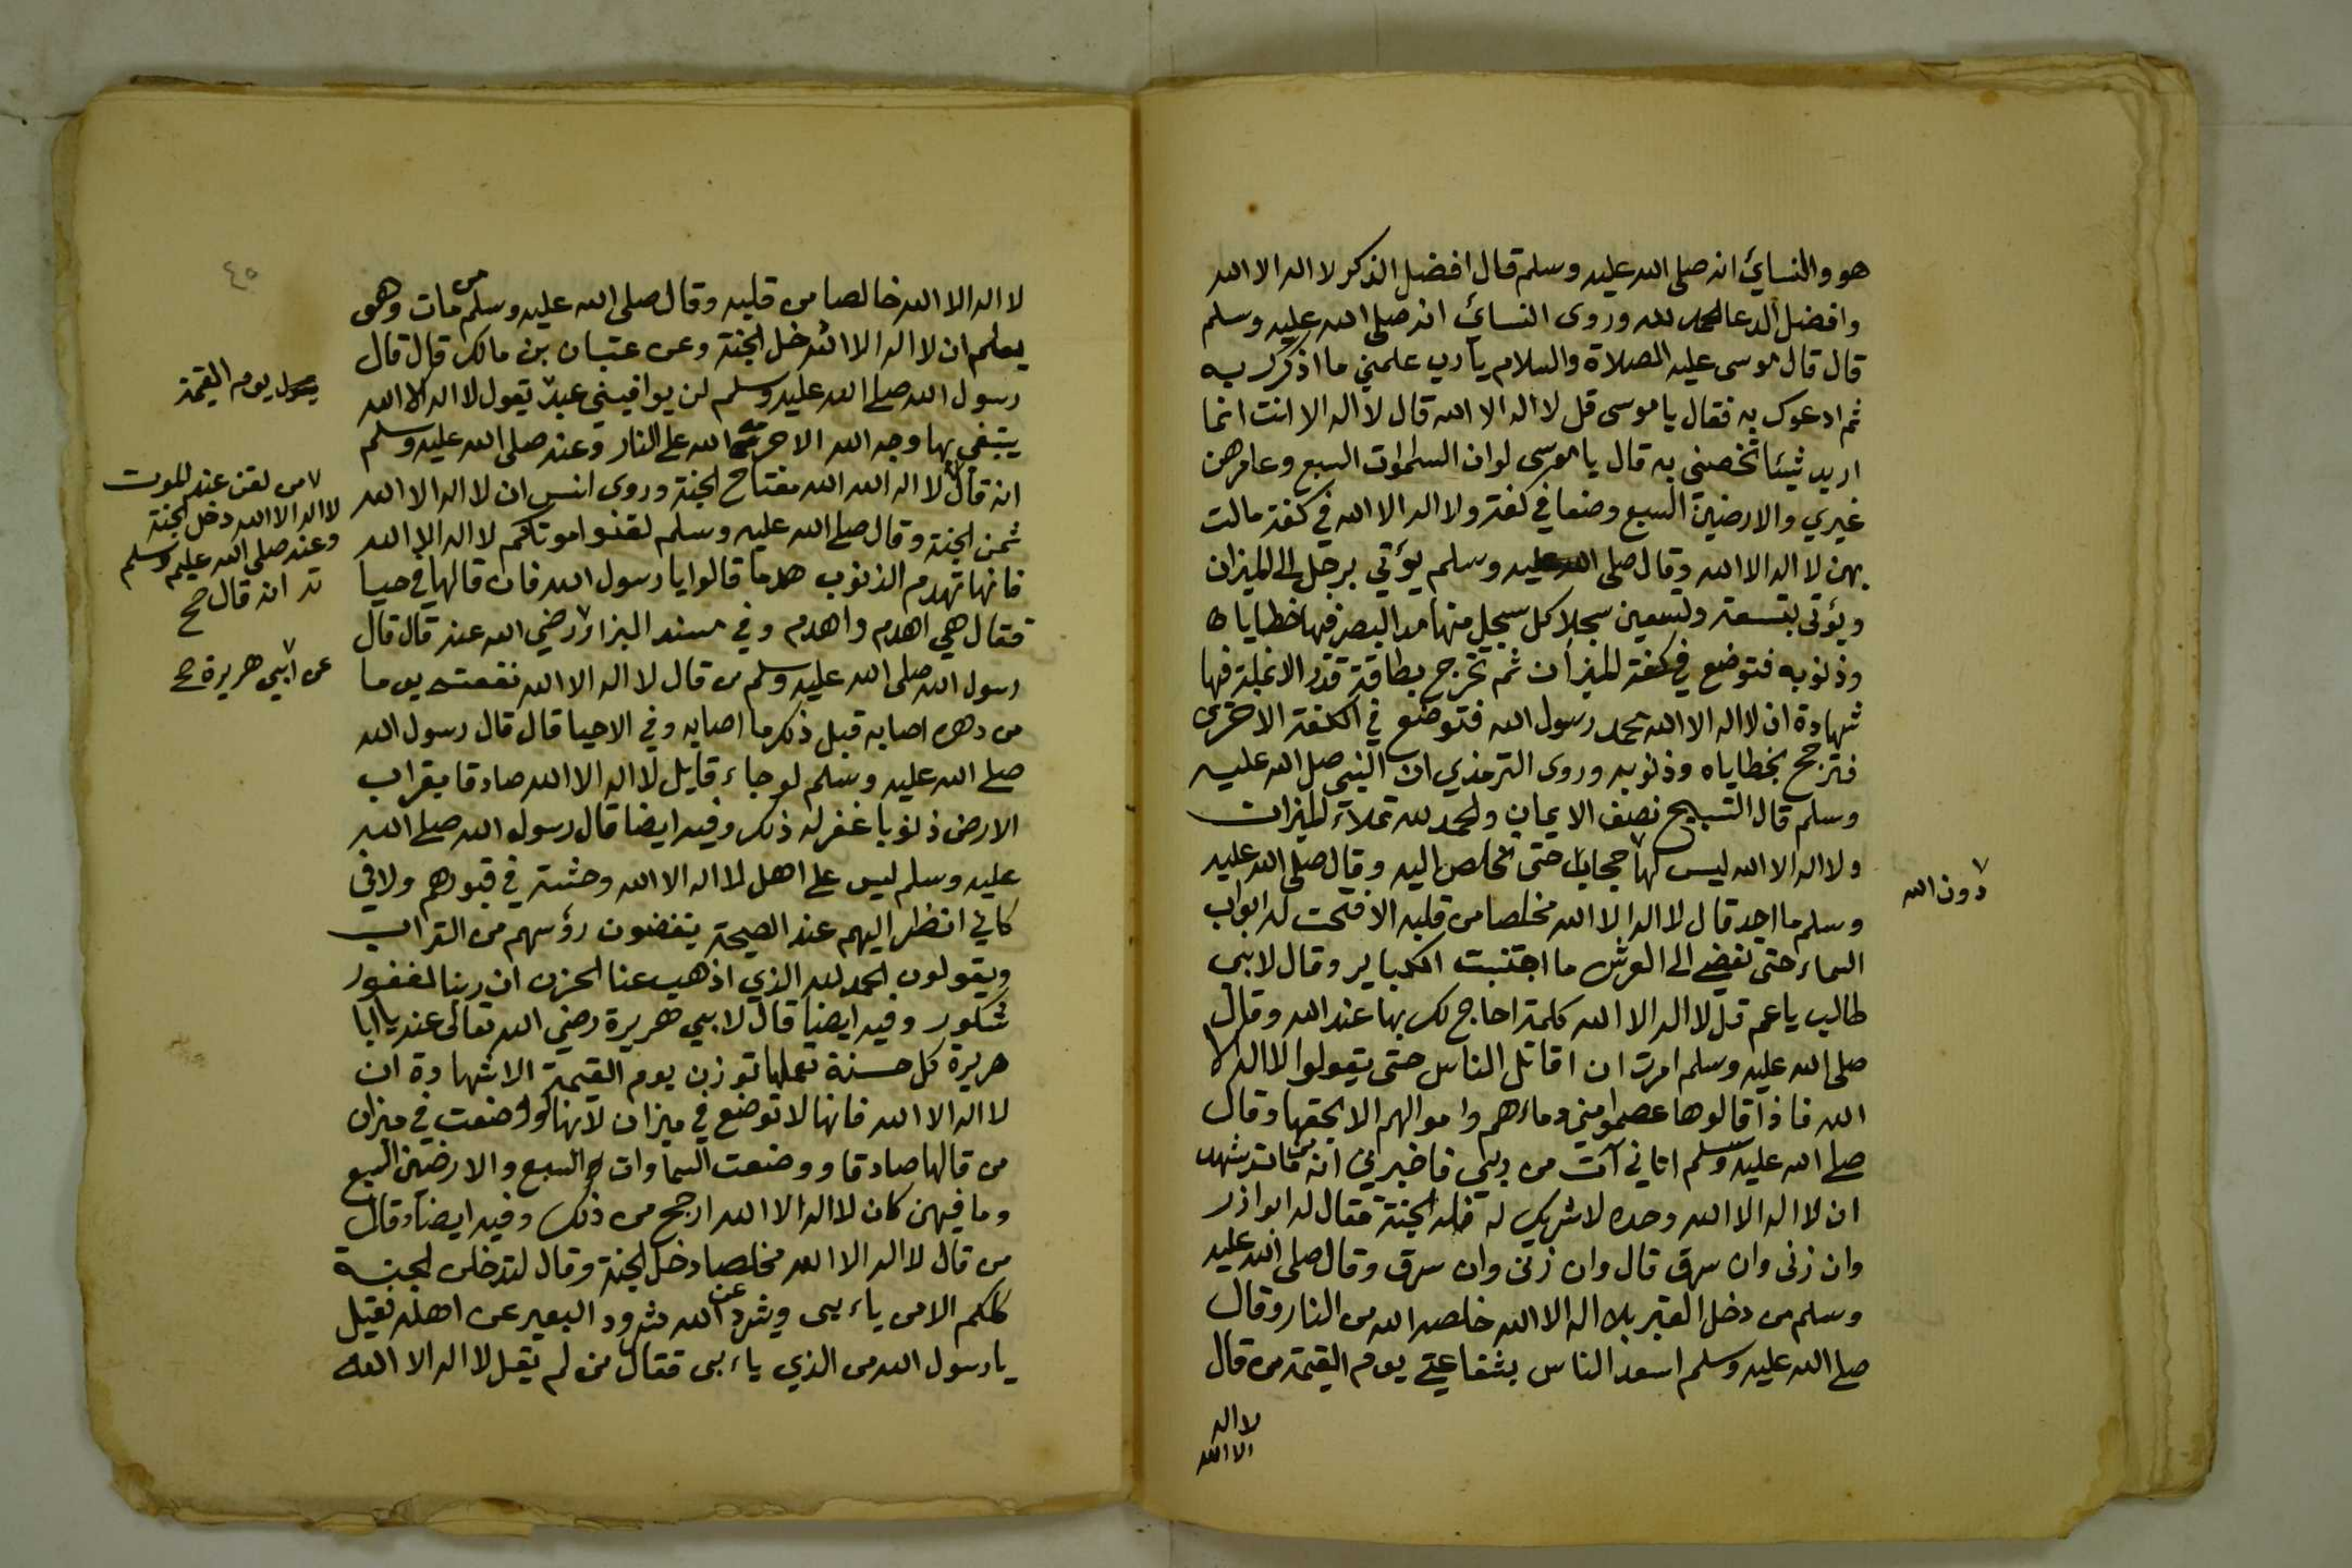 هو والنسائي انه صلى الله عليه وسلم قال افضل الذكر لا اله الا الله
وافضل الدعا الحمد لله وروى النسائ انه صلى الله عليه وسلم
قال قال موسى عليه الصلاة والسلام يارب علمني ما اذكرك به
ثم ادعوك به فقال يا موسى قل لا اله الا الله قال لا اله الا انت انما
اريد شيئا تخصني به قال يا موسى لو ان السلموات السبع وعامرهن
غيري والارضين السبع وضعا في كفة ولا اله الا الله في كفة مالت
بهن لا اله الا الله وقال صلى الله عليه وسلم يؤتي برجل الى الميزان
ويؤتى بتسعة وتسعين سجلا كل سجل منها مد البصر فيها خطاياه
وذنوبه فتوضع في كفة الميزان ثم تخرج بطاقة قدر الانملة فيها
شهادة ان لا اله الا الله محمد رسول الله فتوضع في الكفة الاخرى
فترجح بخطاياه وذنوبه وروى الترمذي ان النبي صلى الله عليه
وسلم قال التسبيح نصف الايمان والحمد لله تملآء الميزان
ولا اله الا الله ليس لها حجاب حتى تخلص اليه وقال صلى الله عليه
دون الله
وسلم ما احد قال لا اله الا الله مخلصا من قلبه الا فتحت له ابواب
السماء حتى تفضي الى العرش ما اجتنبت الكباير وقال لابي
طالب يا عم قل لا اله الا الله كلمة احاج لك بها عند الله وقال
صلى الله عليه وسلم امرت ان اقاتل الناس حتى يقولوا لا اله الا
الله فاذا قالوها عصموا مني دماءهم واموالهم الا بحقها وقال
صلى الله عليه وسلم اتاني آت من ربي فاخبرني انه من مات يشهد
ان لا اله الا الله وحده لا شريك له فله الجنة فقال له ابوا ذر
وان زنى وان سرق قال وان زنى وان سرق وقال صلى الله عليه
وسلم من دخل القبر بلا اله الا الله خلصه الله من النار وقال
صلى الله عليه وسلم اسعد الناس بشفاعتي يوم القيمة من قال
لا اله
الا الله
٤٥
لا اله الا الله خالصا من قلبه وقال صلى الله عليه وسلم من مات وهو
يعلم ان لا اله الا الله دخل الجنة وعن عتبان بن مالك قال قال
رسول الله صلى الله عليه وسلم لن يوافيني عبد يقول لا اله الا الله
يوم القيمة
يبتغي بها وجه الله الا حرمه الله على النار وعنه صلى الله عليه وسلم
انه قال لا اله الله الله مفتاح الجنة وروى انس ان لا اله الا الله
من لقن عند الموت
لا اله الا الله دخل الجنة
وعنه صلى الله عليه وسلم
انه قال صح
ثمن الجنة وقال صلى الله عليه وسلم لقنوا موتاكم لا اله الا الله
فانها تهدم الذنوب هدما قالوا يا رسول الله فان قالها في حيا
فقال هي اهدم واهدم وفي مسند البزار رضي الله عنه قال قال
عن ابي هريرة صح
رسول الله صلى الله عليه وسلم من قال لا اله الا الله نفعته يوما
من دهره اصابه قبل ذلك ما اصابه وفي الاحيا قال قال رسول الله
صلى الله عليه وسلم لو جاء قايل لا اله الا الله صادقا بقراب
الارض ذنوبا غفر له ذلك وفيه ايضا قال رسول الله صلى الله
عليه وسلم ليس على اهل لا اله الا الله وحشة في قبورهم ولا في
كاني انظر اليهم عند الصيحة ينفضون رؤسهم من التراب
ويقولون الحمد لله الذي اذهب عنا الحزن ان ربنا لغفور
شكور وفيه ايضا قال لابي هريرة رضي الله تعالى عنه يا ابا
هريرة كل حسنة تعملها توزن يوم القيمة الا شهادة ان
لا اله الا الله فانها لا توضع في ميزان لانها لو وضعت في ميزان
من قالها صادقا ووضعت السماوات السبع والارضين السبع
وما فيهن كان لا اله الا الله ارجح من ذلك وفيه ايضا وقال
من قال لا اله الا الله مخلصا دخل الجنة وقال لتدخلن الجنة
كلكم الا من ياءبى ويشرد عن الله شرود البعير عن اهله فقيل
يا رسول الله من الذي ياءبى فقال من لم يقل لا اله الا الله